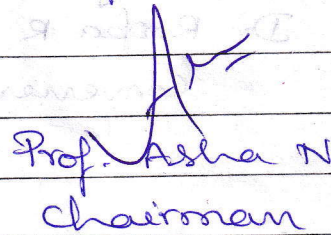 Prof. Asha N
Chairman